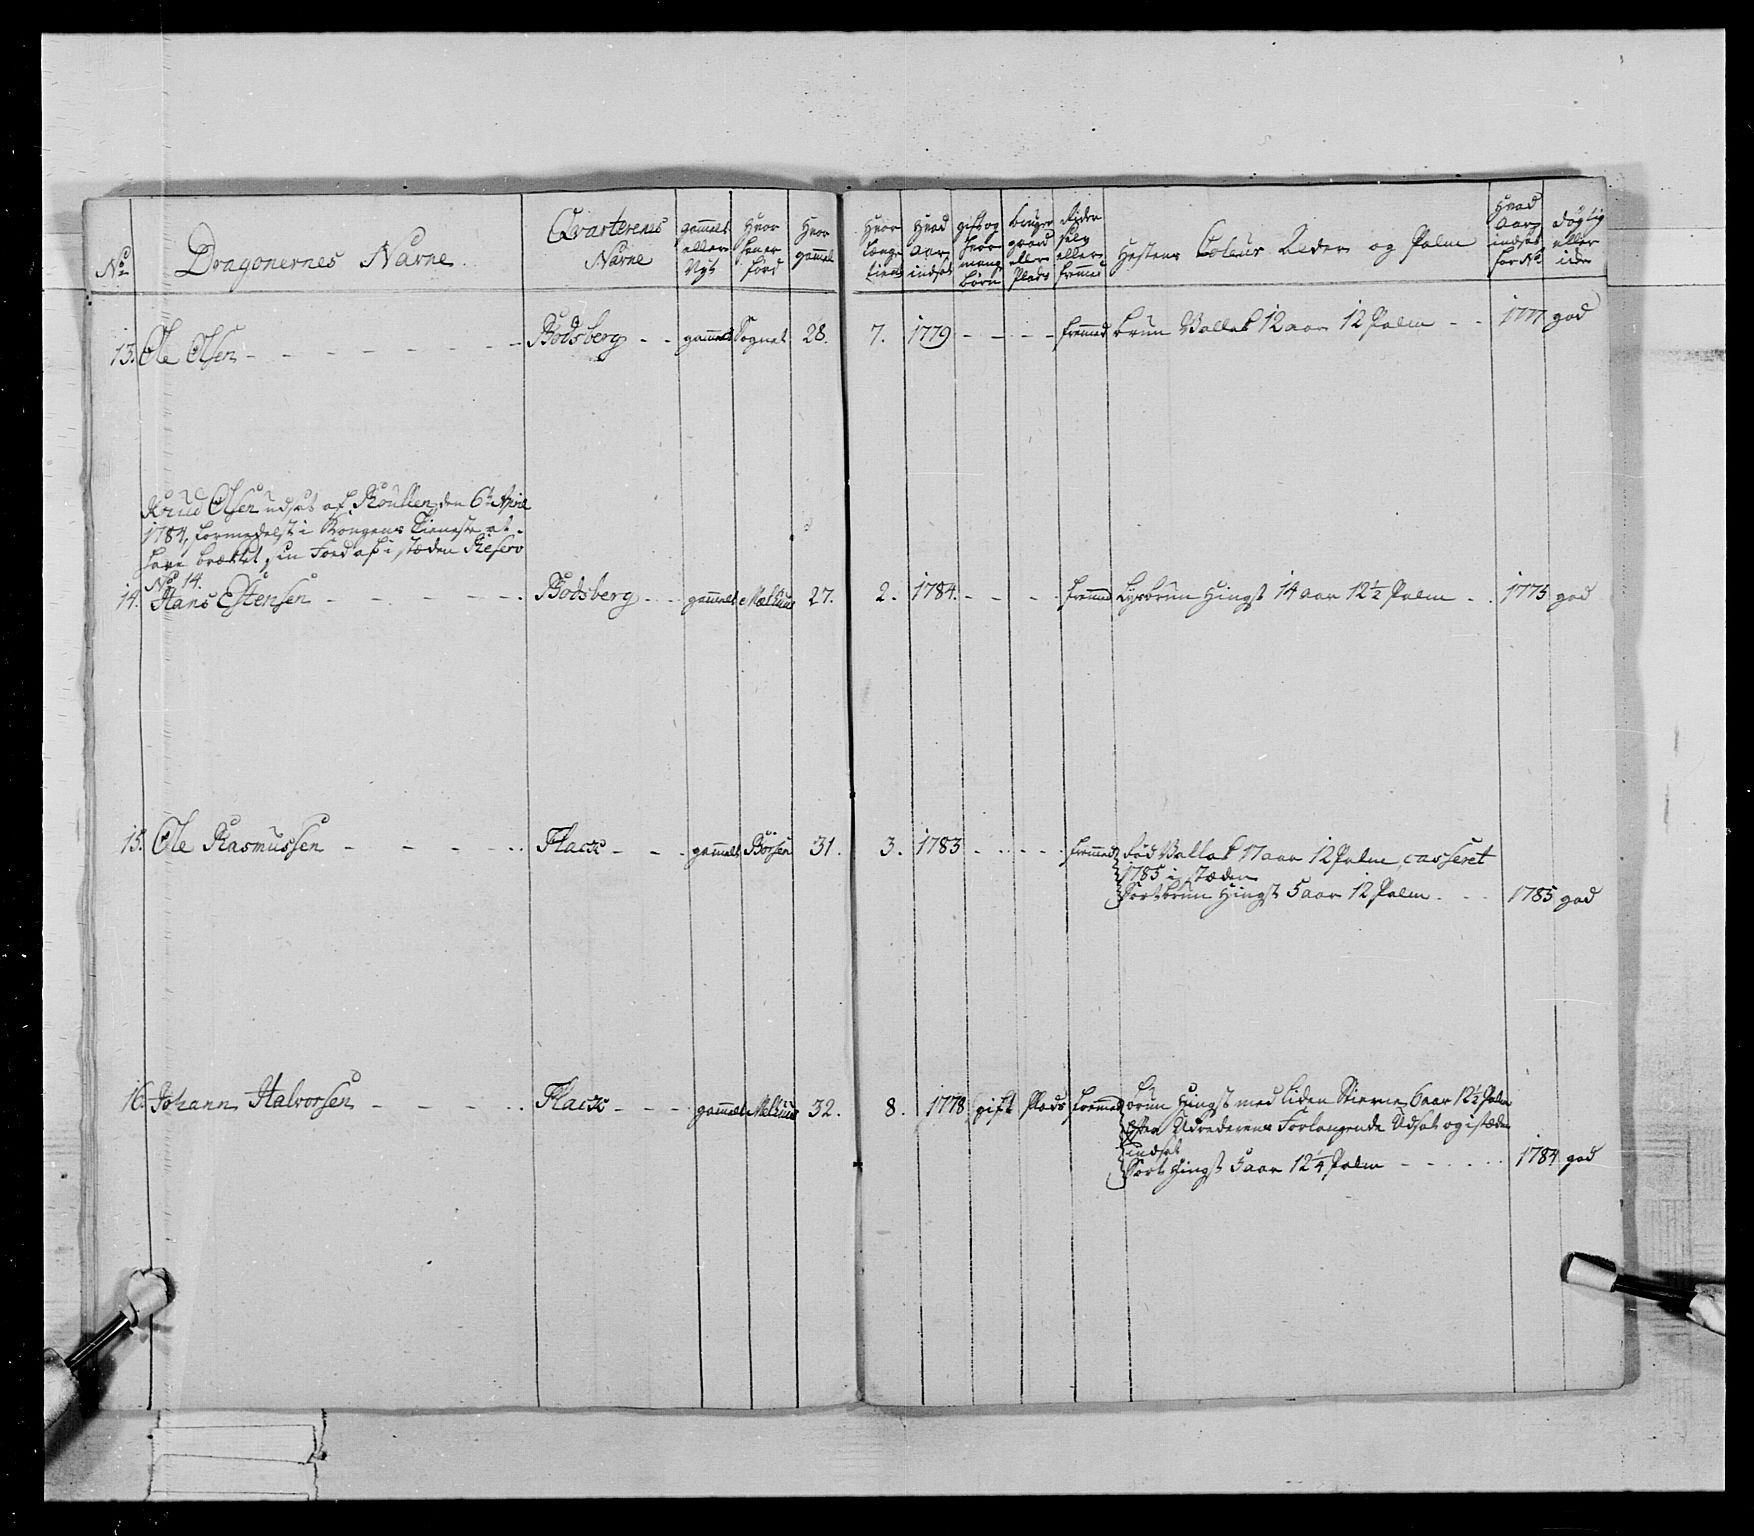 No
Dragonernes Navne
Qvarterenes Navne
gammelt eller Nyt
Hvor hand er född
Hvor gammel
Hvor længe tient
Hvad Aar indsat
gift og hvor mange börn
bruger gaard eller Plads
Rider selv eller fremmed
Hestens Coleur Alder og Palm
Hvad Aar indsat for No
döglig eller ick
13. Ole Olsen - - - - - - - - Rodsberg - - gammelt Sognet 28. 7. 1779 - - - - fremmed brun Vallak 12 aar 12 Palm - - 1777 god
Knud Olsen udsat af Roullen den 6te April
1784, formedelst i Kongens Tieneste at
have brækket sin Foed af i stæden Reserv
No 14.
14. Hans Estensen - - - - - - Rodsberg - - gammelt Melhuus 27. 2. 1784. - - - - fremmed Lysbrun Hingst 14 aar 12½ Palm - . 1775 god
15. Ole Rasmussen - - - - . . Flack - - . gammelt Börsen 31. 3. 1783 - . . . - . fremmed Röd Vallak 17 aar 12 Palm, casseret
1785 i stæden
Sortbrun Hingst 5 aar 12 Palm . . . 1785 god
16. Johann Halvorsen - - - - . . Flack - - - gammelt Melhuus 32. 8. 1778 gift Plads fremmed brun Hingst med liden Stierne 6 aar 12½ Palm
efter Udrederens Forlangende Udsat og i stæden
indsat
Sort Hingst 5 aar 12¼ Palm - - . . . . 1784 god